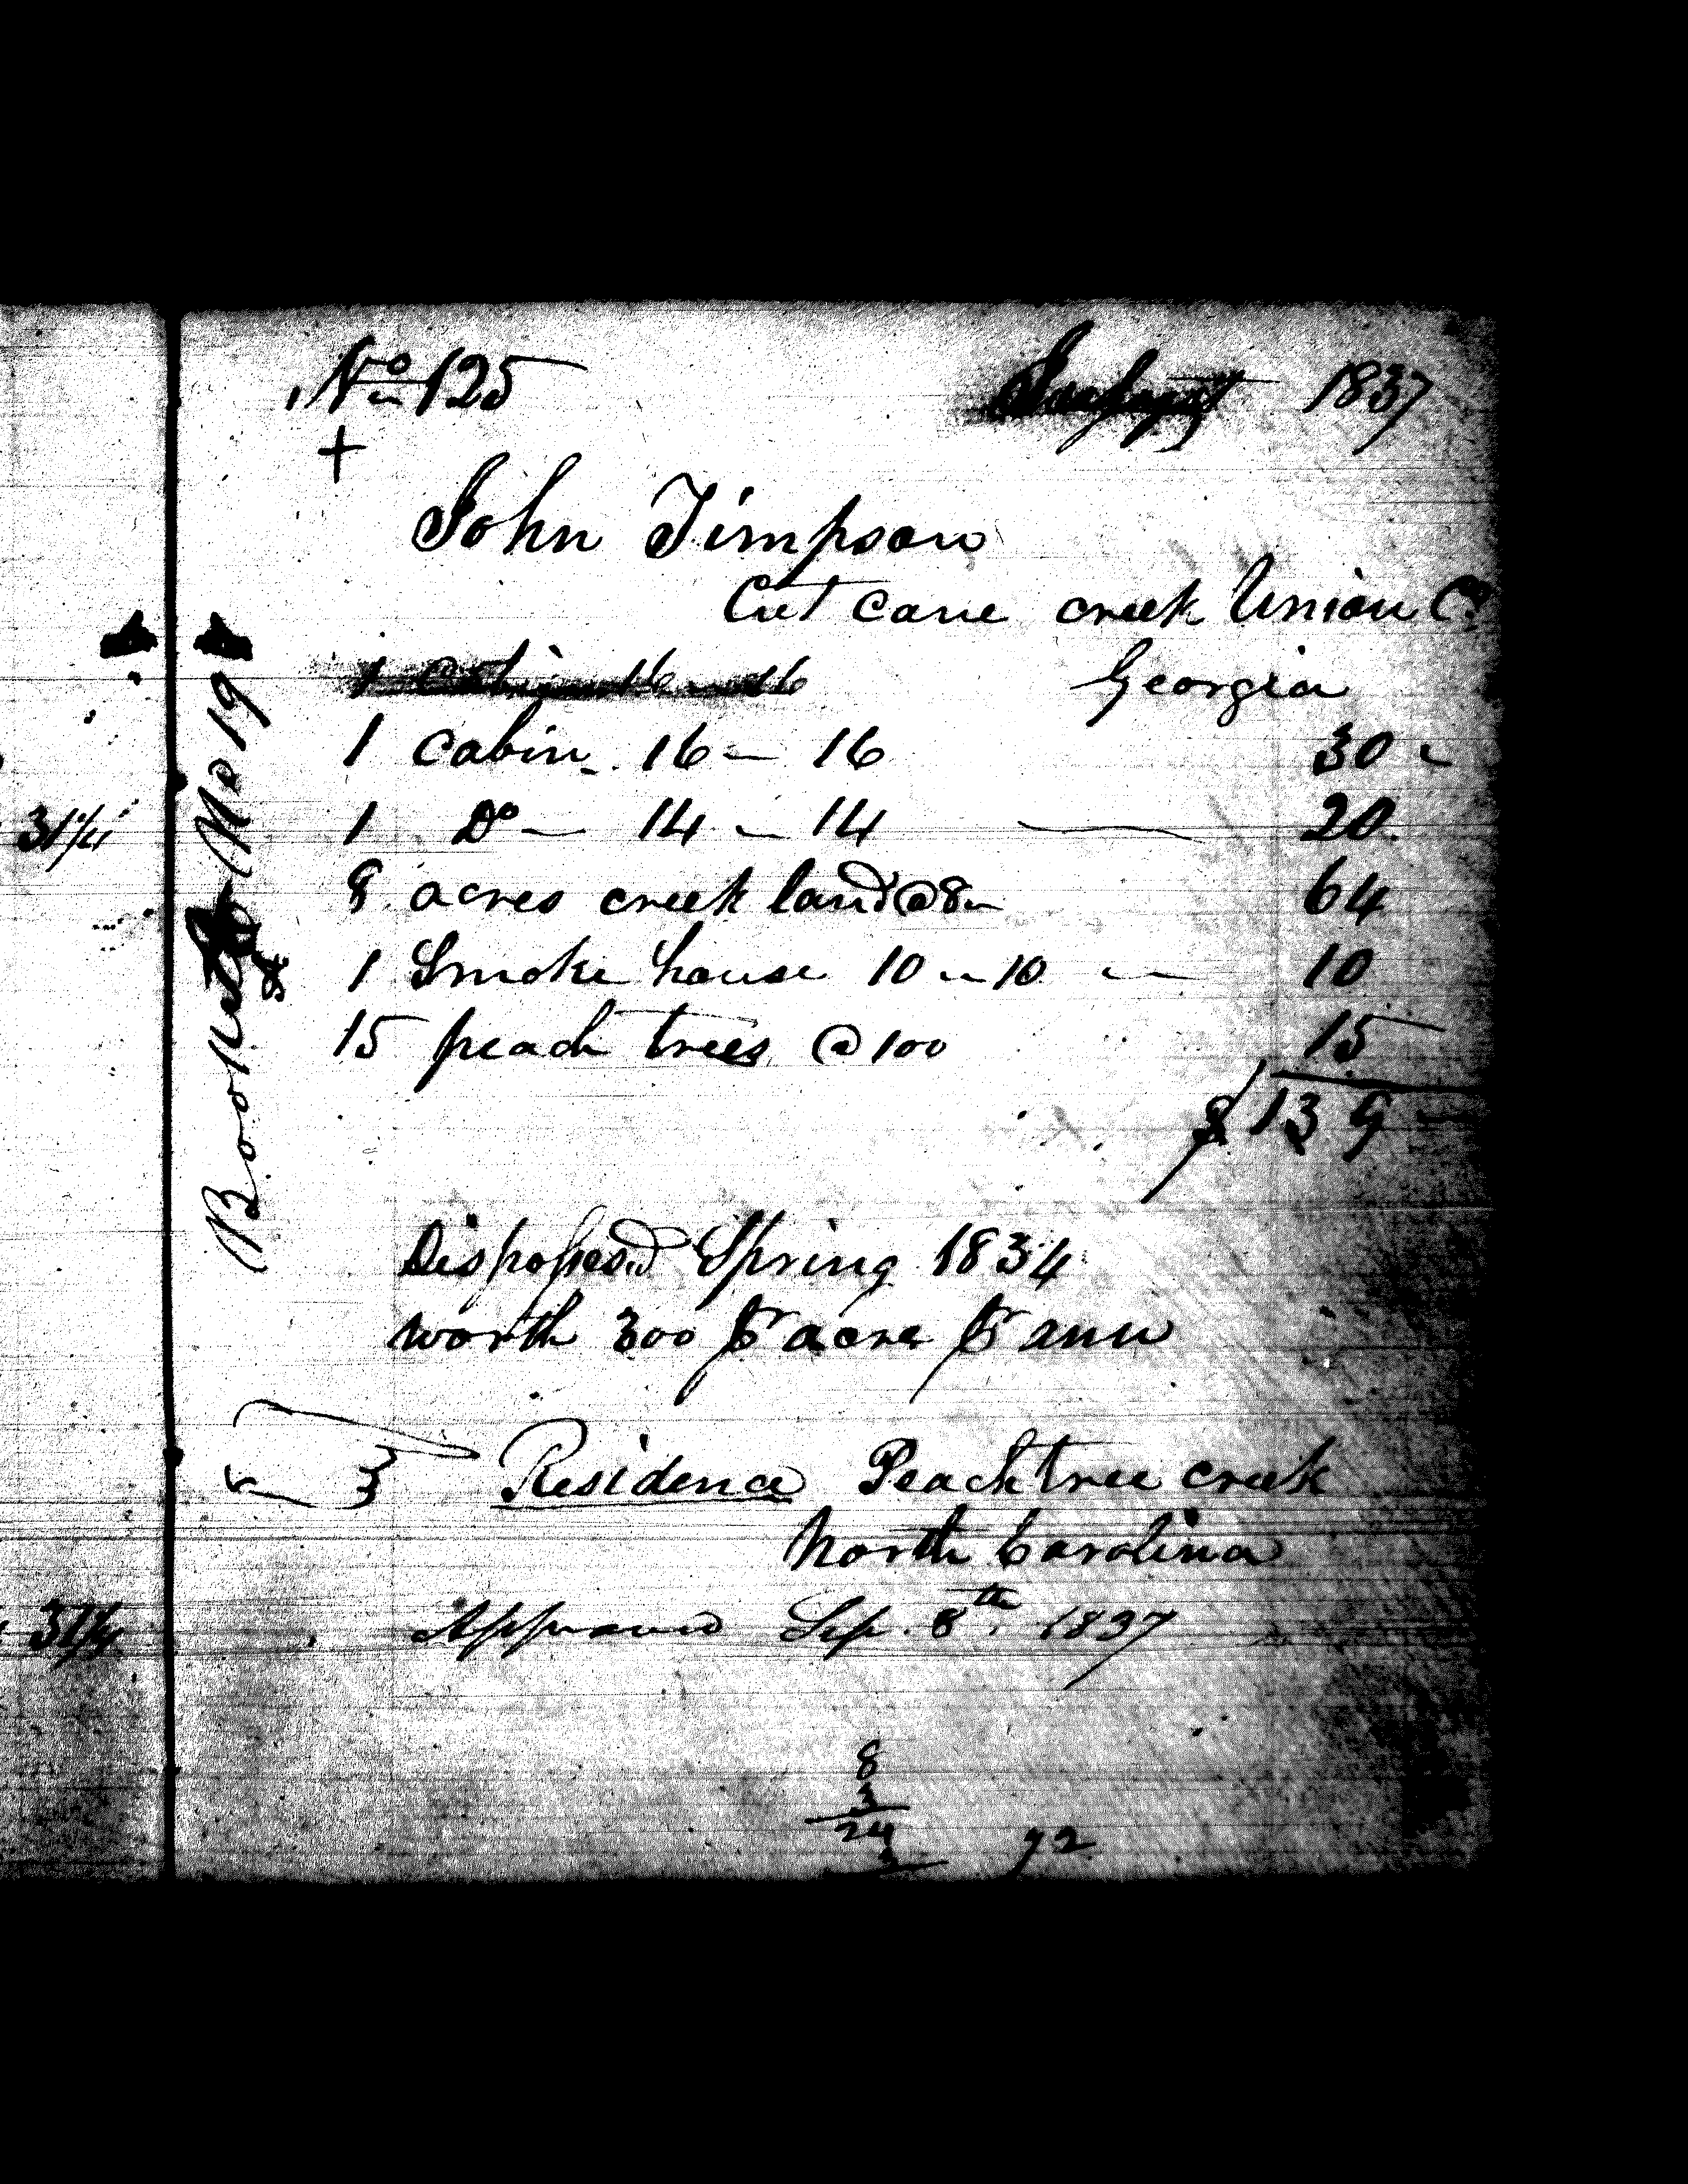 No 125 1837
+
John Timpson
Cut cane creek Union Co.
Georgia
1 Cabin 16 - 16
1 cabin 16 - 16 30 -
1 Do - 14 - 14 20
8 acres creek land @ 8 - 64
1 Smoke house 10 - 10 10
15 peach trees @ 100 15
$139 -
Dispossesd Spring 1834
worth 300 pr acre pr ann
Residence Peachtree creek
North Carolina
Approved Sep. 8th. 1837
8
3
24
3 72
Book No 19
31 1/4
31 1/4